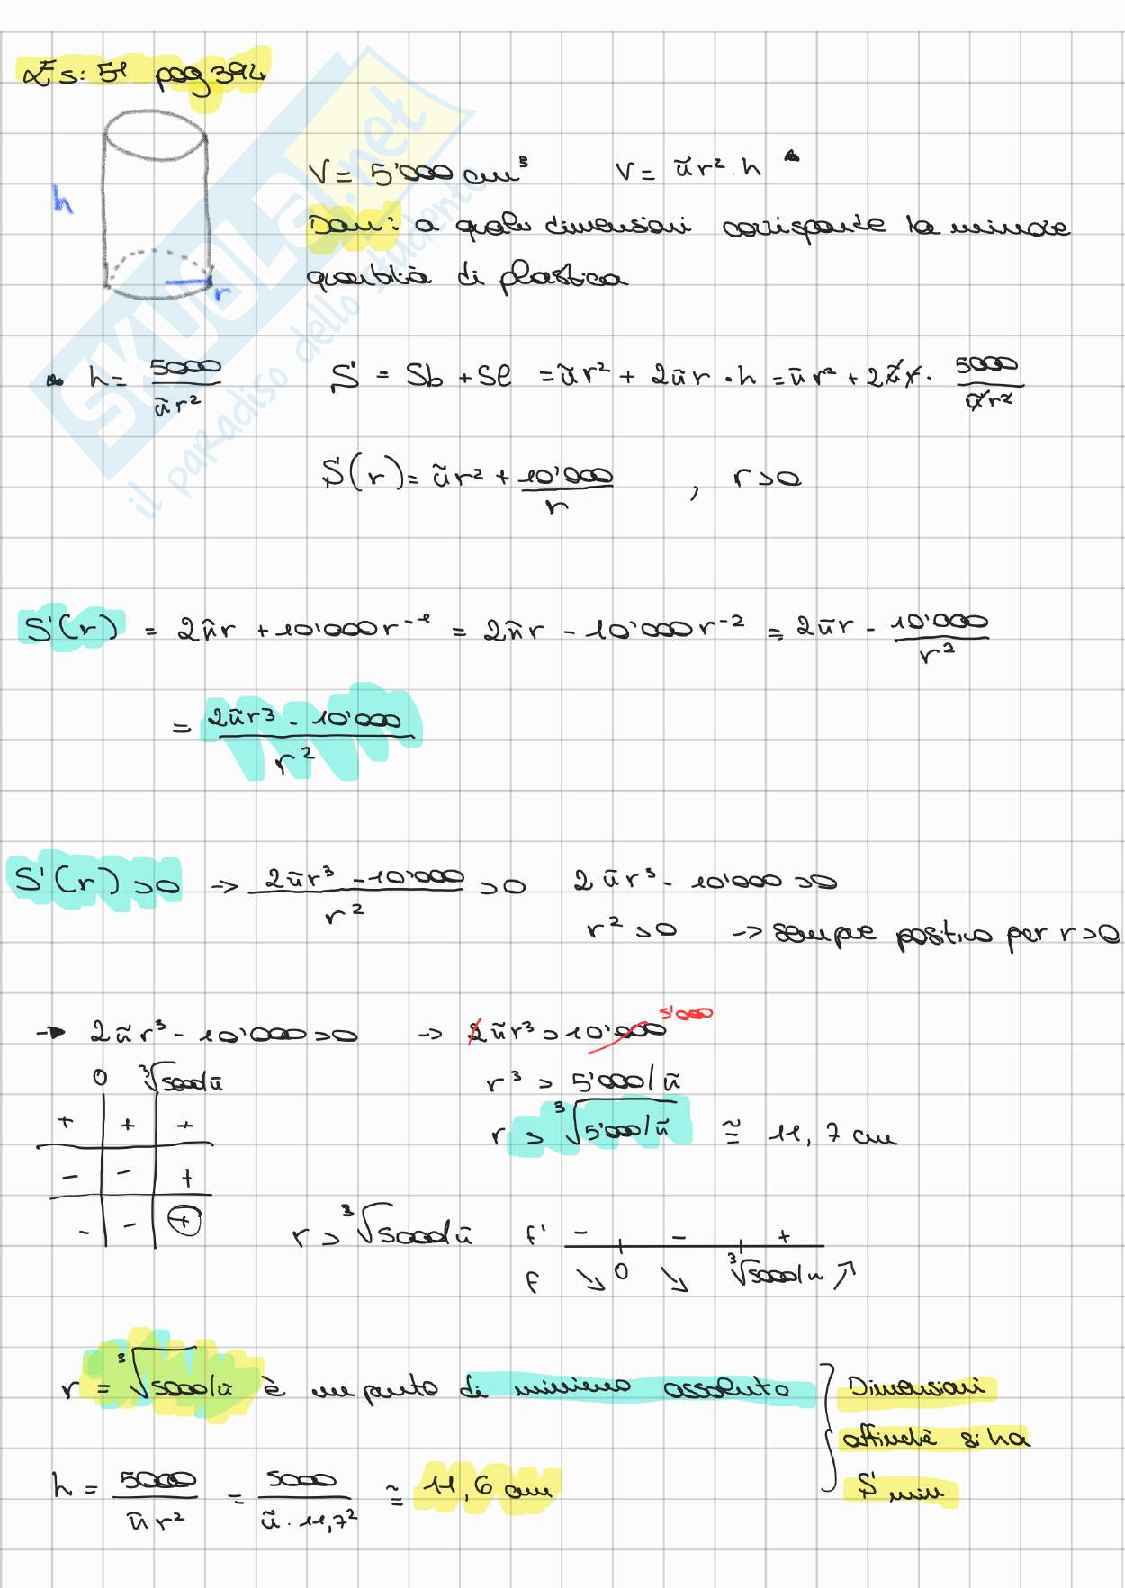 Es: 51 pag 392
V = 5'000 cm³ V = π r² · h
Dom: a quali dimensioni corrisponde la minore
quantità di plastica
h
r
h = 5000 / π r² S = Sb + Sl = π r² + 2π r · h = π r² + 2π r · 5000 / π r²
S(r) = π r² + 10'000 / r , r > 0
S'(r) = 2π r + 10'000 r⁻¹ = 2π r - 10'000 r⁻² = 2π r - 10'000 / r²
= 2π r³ - 10'000 / r²
S'(r) > 0 → 2π r³ - 10'000 / r² > 0 2π r³ - 10'000 > 0
r² > 0 → sempre positivo per r > 0
→ 2π r³ - 10'000 > 0 → 2π r³ > 10'000 5'000
0 ³√5000/π r³ > 5'000/π
+ + + r > ³√5'000/π ≅ 11,7 cm
- - +
- - + r > ³√5000/π f' - - +
f ↘ 0 ↘ ³√5000/π ↗
r = ³√5000/π è un punto di minimo assoluto } Dimensioni
affinché si ha
h = 5000 / π r² = 5000 / π · 11,7² ≅ 11,6 cm S min
SKUOLA.net
il paradiso dello studente